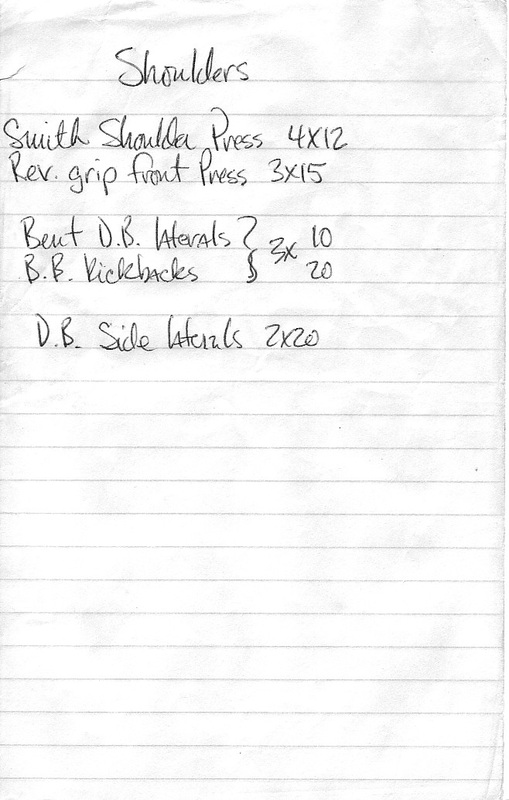 Shoulders
Smith Shoulder Press 4x12
Rev. grip front Press 3x15
Bent D.B. laterals } 3x 10
B.B. Kickbacks } 20
D.B. Side laterals 2x20